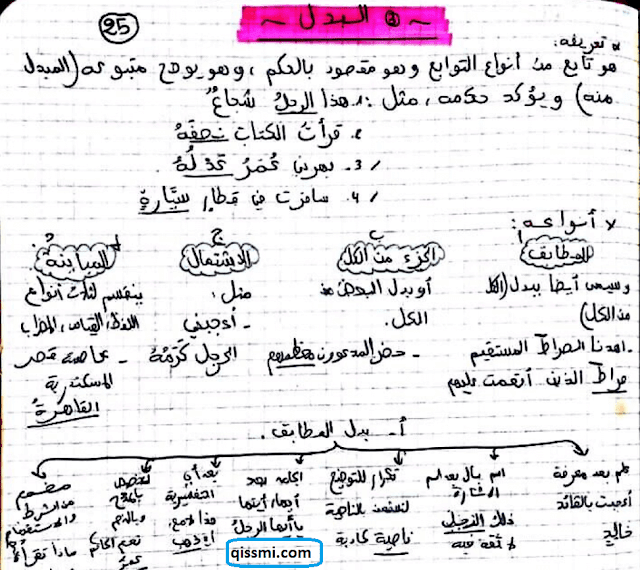 25
② البدل
* تعريفه:
هو تابع من أنواع التوابع وهو مقصود بالحكم، وهو يوضح متبوعه (المبدل
منه) ويؤكد حكمه، مثل: 1. هذا الرجل شجاع
2. قرأت الكتاب نصفه
3. بهرني عمر عدله.
4. سافرت في قطار سيارة
* أنواعه:
أ المطابق
ب الجزء من الكل
ج الاشتمال
د المباينة
وسيمى أيضا ببدل (الكل
من الكل)
- اهدنا الصراط المستقيم
صراط الذين أنعمت عليهم
أو بدل البعض من
الكل.
- حضر المدعوون معظمهم
مثل:
- أعجبني
الرجل كرمه
ينقسم لثلاث أنواع
الغلط، النسيان، الإضراب
- عاصمة مصر
الإسكندرية
القاهرة
أ- بدل المطابق.
علم بعد معرفة
أعجبت بالقائد
خالد
اسم بال بعد اسم
الإشارة
ذلك الرجل
لا ثقة فيه
تكرار للتوضيح
لنسفعن بالناصية
ناصية كاذبة
الكلمة بعد
أيها، أيتها
يا أيها الرجل
بعد أي
التفسيرية
هذا لامع،
أي ذهب
بالمدح
وبالذم
نعم الحاكم
عمر
من الشرط
والاستفهام
ماذا تقرأ
qissmi.com